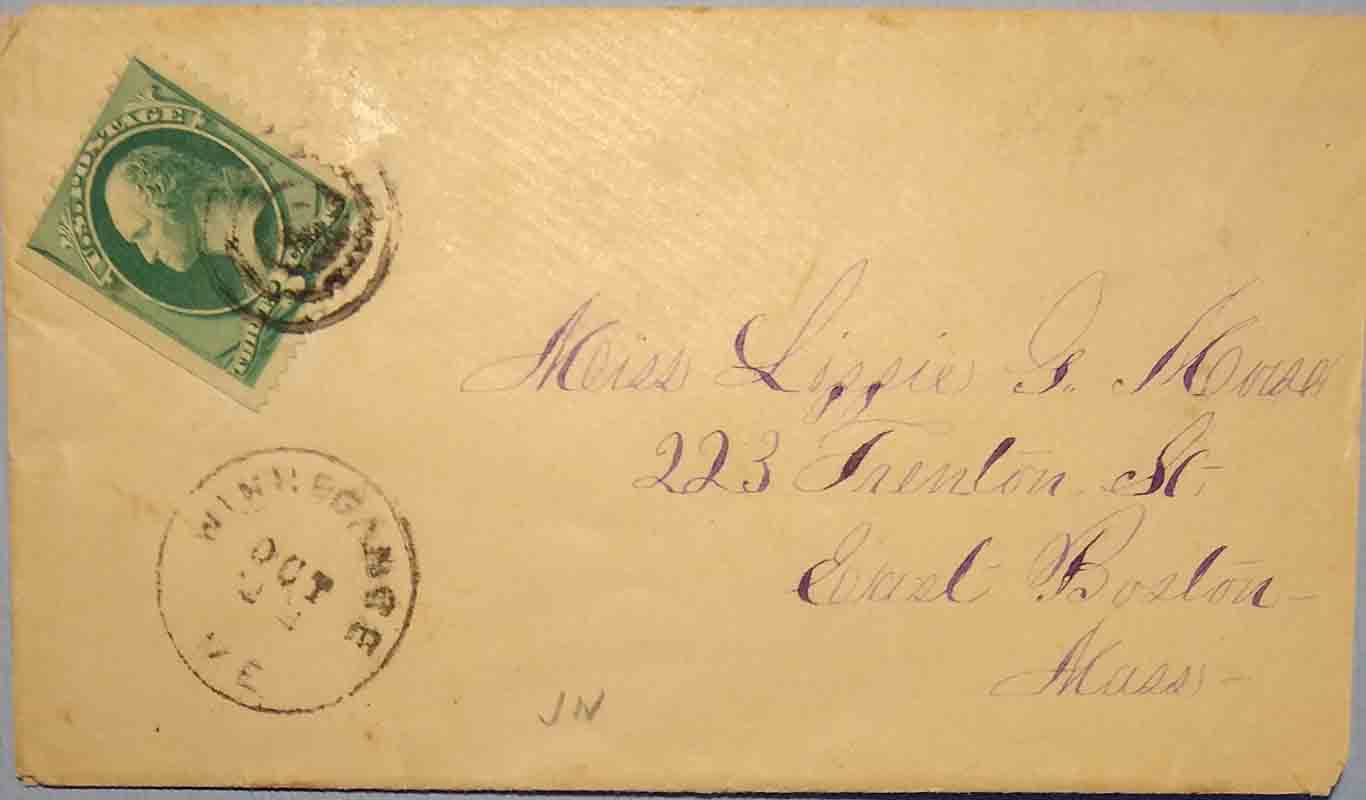 U.S. POSTAGE
THREE
3
Miss Lizzie G. Morse
223 Trenton St.
East Boston
Mass
WINNEGANCE
OCT
ME
JN